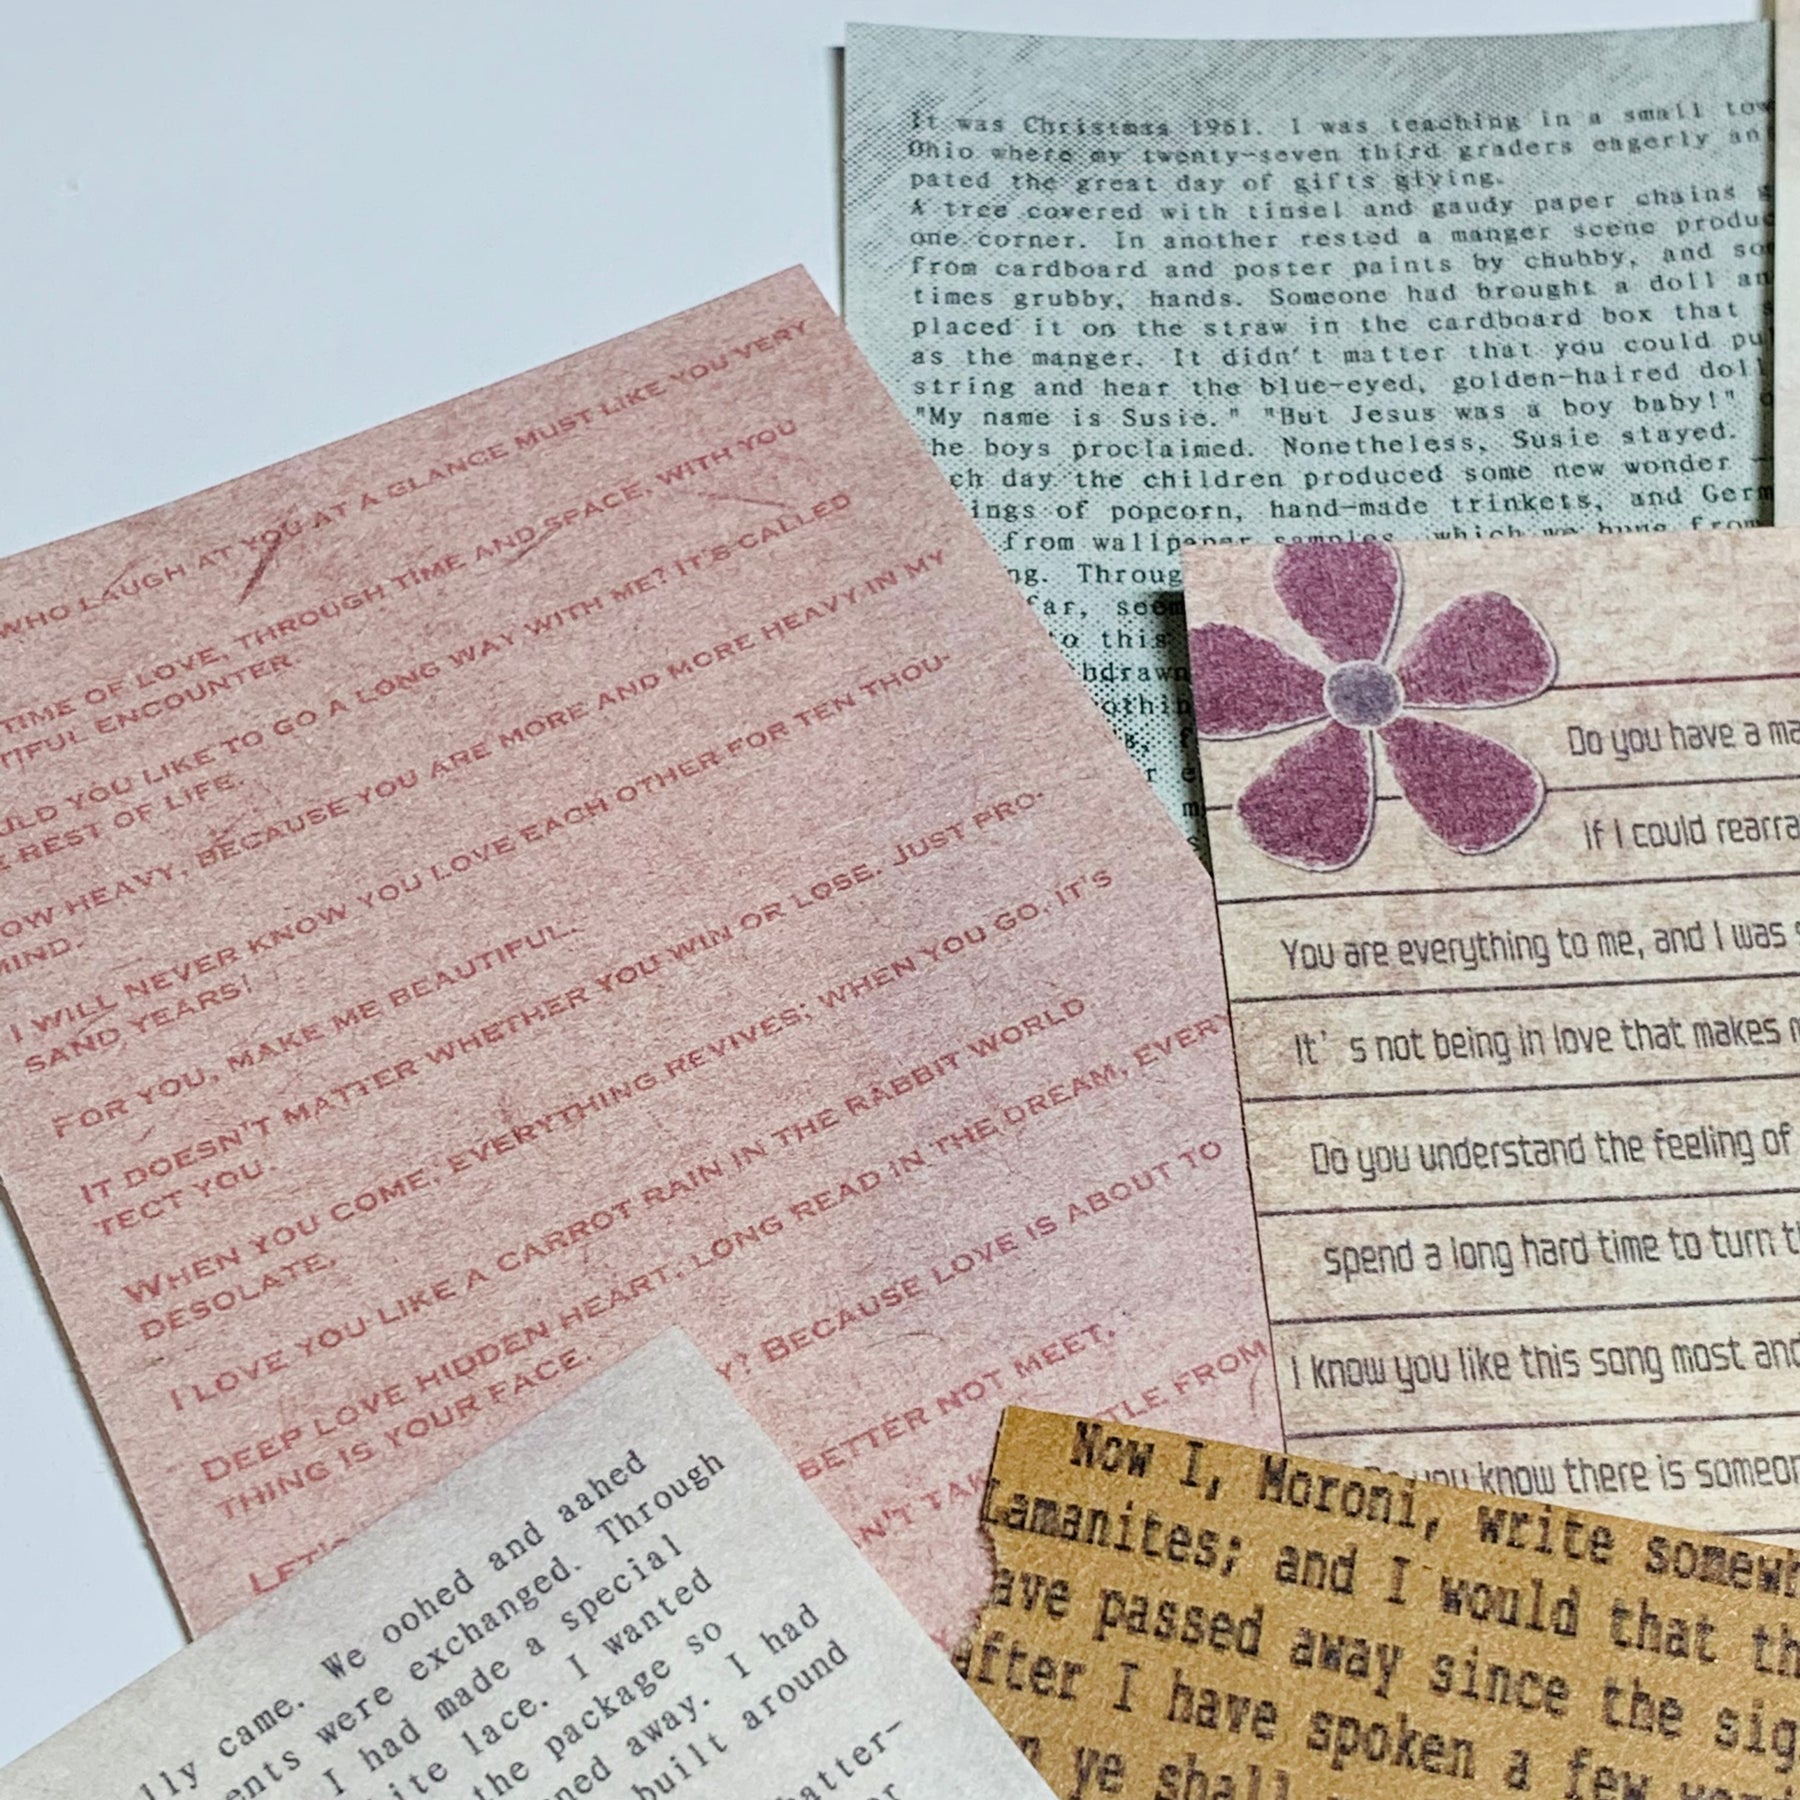 It was Christmas 1961. I was teaching in a small
Ohio where my twenty-seven third graders eagerly
pated the great day of gifts giving.
A tree covered with tinsel and gaudy paper chains
one corner. In another rested a manger scene
from cardboard and poster paints by chubby, and
times grubby, hands. Someone had brought a doll
placed it on the straw in the cardboard box that
as the manger. It didn't matter that you could
string and hear the blue-eyed, golden-haired
"My name is Susie." "But Jesus was a boy baby!"
he boys proclaimed. Nonetheless, Susie stayed.
ch day the children produced some new wonder —
ings of popcorn, hand-made trinkets, and
from wallpaper samples, which we hung from
ng. Throug
far,
to this
hdrawn
WHO LAUGH AT YOU AT A GLANCE MUST LIKE YOU VERY
TIME OF LOVE, THROUGH TIME AND SPACE, WITH YOU
TIFUL ENCOUNTER.
ULD YOU LIKE TO GO A LONG WAY WITH ME? IT'S CALLED
E REST OF LIFE.
OW HEAVY, BECAUSE YOU ARE MORE AND MORE HEAVY IN MY
MIND.
I WILL NEVER KNOW YOU LOVE EACH OTHER FOR TEN THOU-
SAND YEARS!
FOR YOU, MAKE ME BEAUTIFUL.
IT DOESN'T MATTER WHETHER YOU WIN OR LOSE. JUST PRO-
TECT YOU.
WHEN YOU COME, EVERYTHING REVIVES; WHEN YOU GO, IT'S
DESOLATE.
I LOVE YOU LIKE A CARROT RAIN IN THE RABBIT WORLD.
DEEP LOVE HIDDEN HEART, LONG READ IN THE DREAM, EVERY
THING IS YOUR FACE.
Y? BECAUSE LOVE IS ABOUT TO
LET'S
BETTER NOT MEET.
N'T TAK TLE FROM
Do you have a ma
If I could rearra
You are everything to me, and I was s
It' s not being in love that makes m
Do you understand the feeling of
spend a long hard time to turn t
I know you like this song most and
you know there is someon
lly came. We oohed and aahed
ents were exchanged. Through
I had made a special
ite lace. I wanted
the package so
ned away. I had
built around
atter-
or
Now I, Moroni, write somewh
Lamanites; and I would that th
ave passed away since the sig
after I have spoken a few
ye shall